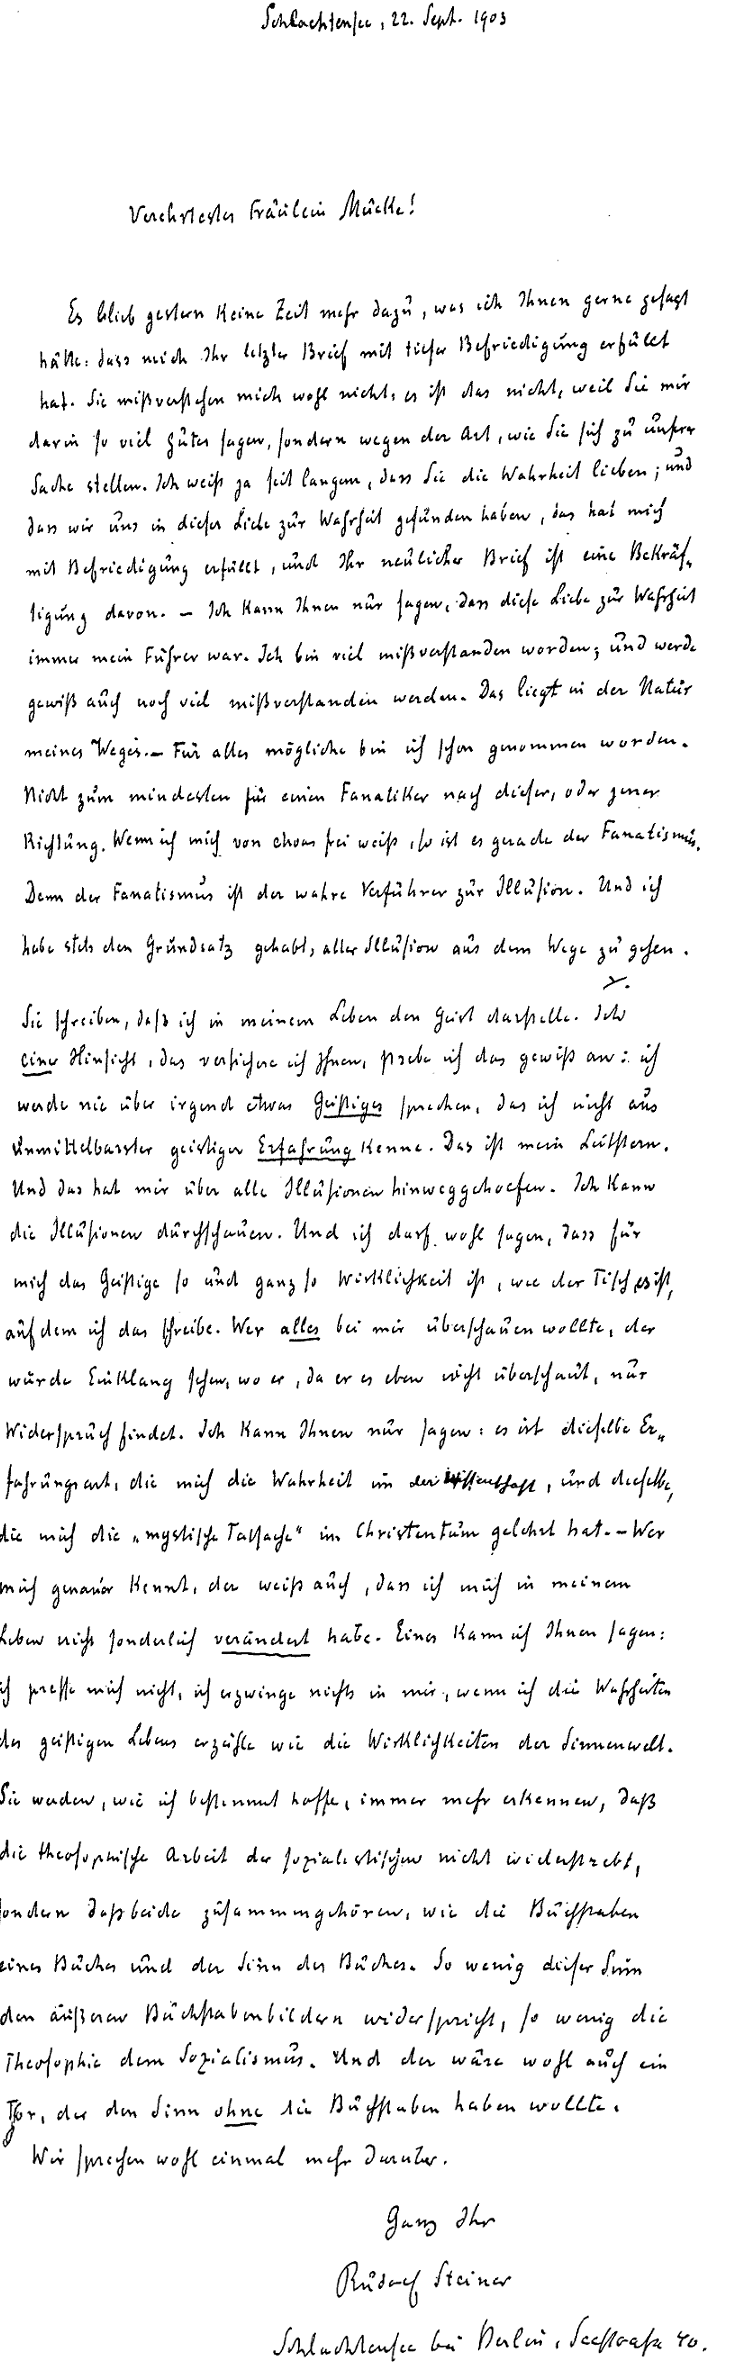 Schlachtensee, 22. Sept. 1903
Verehrtestes Fräulein Mücke!
Es blieb gestern keine Zeit mehr dazu, was ich Ihnen gerne gesagt
hätte: dass mich Ihr letzter Brief mit tiefer Befriedigung erfüllt
hat. Sie mißverstehen mich wohl nicht: es ist das nicht, weil Sie mir
darin so viel Gutes sagen, sondern wegen der Art, wie Sie sich zu unsrer
Sache stellen. Ich weiß ja seit langem, dass Sie die Wahrheit lieben; und
dass wir uns in dieser Liebe zur Wahrheit gefunden haben, das hat mich
mit Befriedigung erfüllt, und Ihr neulicher Brief ist eine Bekräf-
tigung davon. – Ich kann Ihnen nur sagen, dass diese Liebe zur Wahrheit
immer mein Führer war. Ich bin viel mißverstanden worden; und werde
gewiß auch noch viel mißverstanden werden. Das liegt in der Natur
meines Weges. – Für alles mögliche bin ich schon genommen worden.
Nicht zum mindesten für einen Fanatiker nach dieser, oder jener
Richtung. Wenn ich mich von etwas frei weiß, so ist es gerade der Fanatismus.
Denn der Fanatismus ist der wahre Verführer zur Illusion. Und ich
habe stets den Grundsatz gehabt, aller Illusion aus dem Wege zu gehen.
Sie schreiben, daß ich in meinem Leben den Geist darstelle. In
einer Hinsicht, das versichere ich Ihnen, strebe ich das gewiß an: ich
werde nie über irgend etwas Geistiges sprechen, das ich nicht aus
unmittelbarster geistiger Erfahrung kenne. Das ist mein Leitstern.
Und das hat mir über alle Illusionen hinweggeholfen. Ich kann
die Illusionen durchschauen. Und ich darf wohl sagen, dass für
mich das Geistige so und ganz so Wirklichkeit ist, wie der Tisch es ist,
auf dem ich das schreibe. Wer alles bei mir überschauen wollte, der
würde Einklang sehen, wo er, da er es eben nicht überschaut, nur
Widerspruch findet. Ich kann Ihnen nur sagen: es ist dieselbe Er-
fahrungsart, die mich die Wahrheit in der Wissenschaft, und dieselbe,
die mich die „mystische Tatsache" im Christentum gelehrt hat. – Wer
mich genauer kennt, der weiß auch, dass ich mich in meinem
Leben nicht sonderlich verändert habe. Eines kann ich Ihnen sagen:
ich presse mich nicht, ich erzwinge nichts in mir, wenn ich die Wahrheiten
des geistigen Lebens erzähle wie die Wirklichkeiten der Sinnenwelt.
Sie werden, wie ich bestimmt hoffe, immer mehr erkennen, daß
die theosophische Arbeit der sozialistischen nicht widerstrebt,
sondern daß beide zusammengehören, wie die Buchstaben
eines Buches und der Sinn des Buches. So wenig dieser Sinn
den äußeren Buchstabenbildern widerspricht, so wenig die
Theosophie dem Sozialismus. Und der wäre wohl auch ein
Tor, der den Sinn ohne die Buchstaben haben wollte.
Wir sprechen wohl einmal mehr darüber.
Ganz Ihr
Rudolf Steiner
Schlachtensee bei Berlin, Seestraße 40.